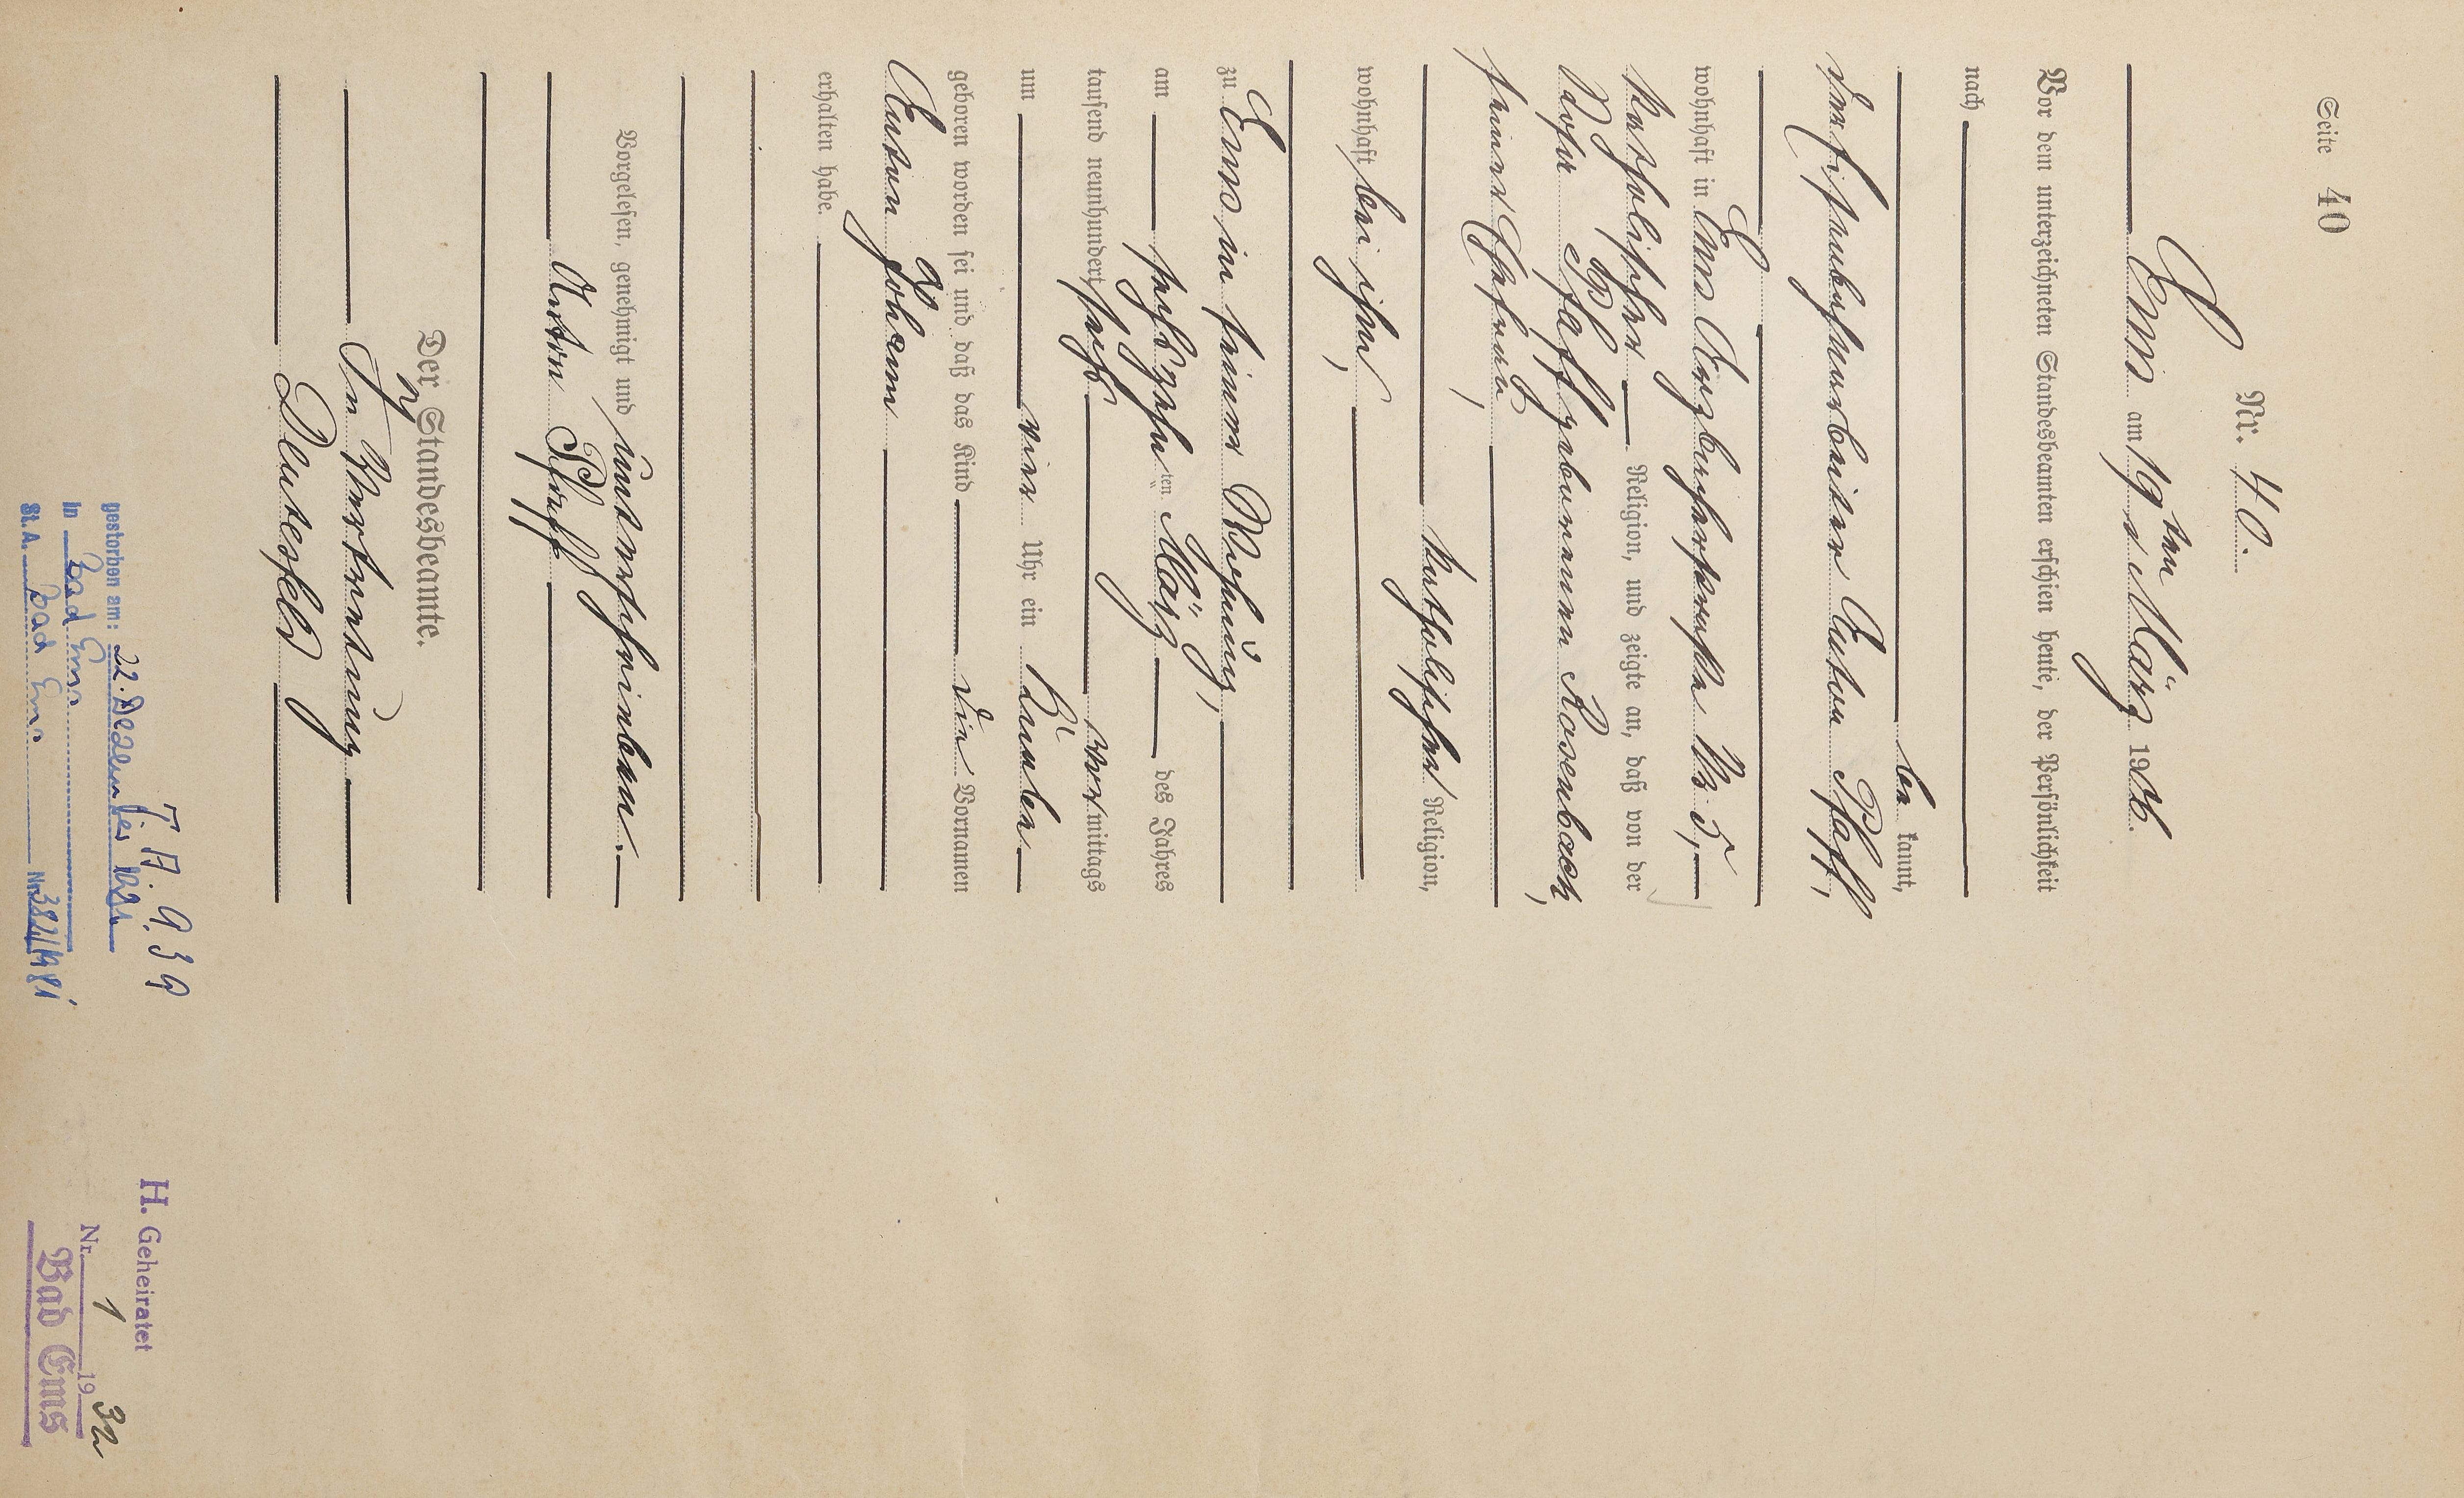 Seite 40
Nr. 40.
Ems am 19ten März 1906.
Vor dem unterzeichneten Standesbeamten erschien heute, der Persönlichkeit
nach
be kannt,
der Anton Pfaff,
wohnhaft in Ems Nr 5,
katholischer Religion, und zeigte an, daß von der
Pfaff geborenen Rosenbach,
seiner Ehefrau,
katholischer Religion,
wohnhaft bei ihm,
zu Ems in seiner Wohnung,
am sechszehn ten März des Jahres
tausend neunhundert sechs vormittags
um vier Uhr ein Knabe
geboren worden sei und daß das Kind die Vornamen
Anton Johann
erhalten habe.
Vorgelesen, genehmigt und unterschrieben.
Anton Pfaff
Der Standesbeamte.
In Vertretung
gestorben am: 22. Dezember 1981
in Bad Ems
St.A. Bad Ems Nr. 382/1981
H. Geheiratet
Nr. 1 19 32
Bad Ems